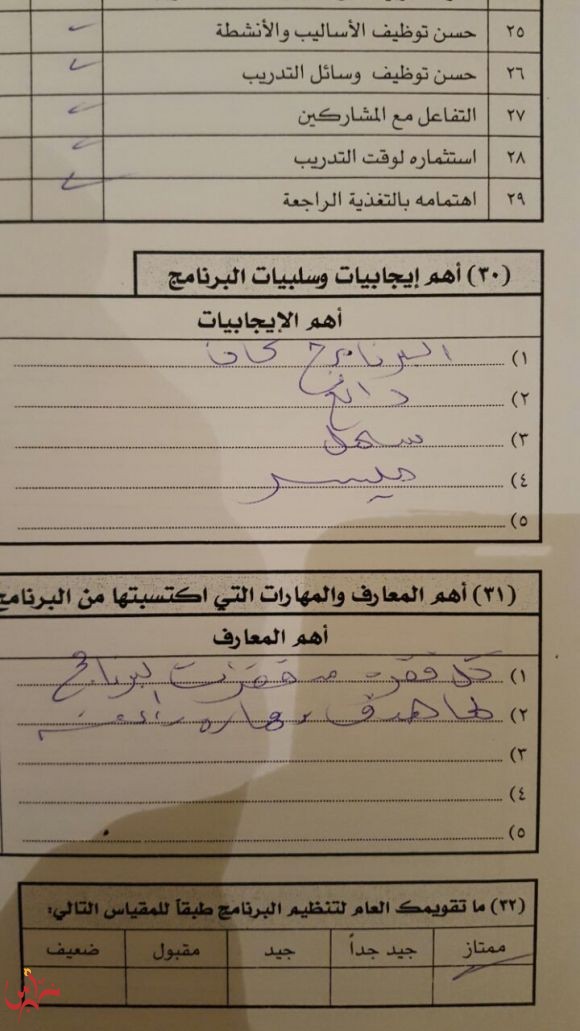 ٢٥ حسن توظيف الأساليب والأنشطة
٢٦ حسن توظيف وسائل التدريب
٢٧ التفاعل مع المشاركين
٢٨ استثماره لوقت التدريب
٢٩ اهتمامه بالتغذية الراجعة
(٣٠) أهم إيجابيات وسلبيات البرنامج
أهم الإيجابيات
(١ البرنامج كان
(٢ رائع
(٣ سهل
(٤ ميسر
(٥
(٣١) أهم المعارف والمهارات التي اكتسبتها من البرنامج
أهم المعارف
(١ كل فقرة من فقرات البرنامج
(٢ لها هدف ومهاره رائعة
(٣
(٤
(٥
(٣٢) ما تقويمك العام لتنظيم البرنامج طبقاً للمقياس التالي:
ممتاز جيد جداً جيد مقبول ضعيف